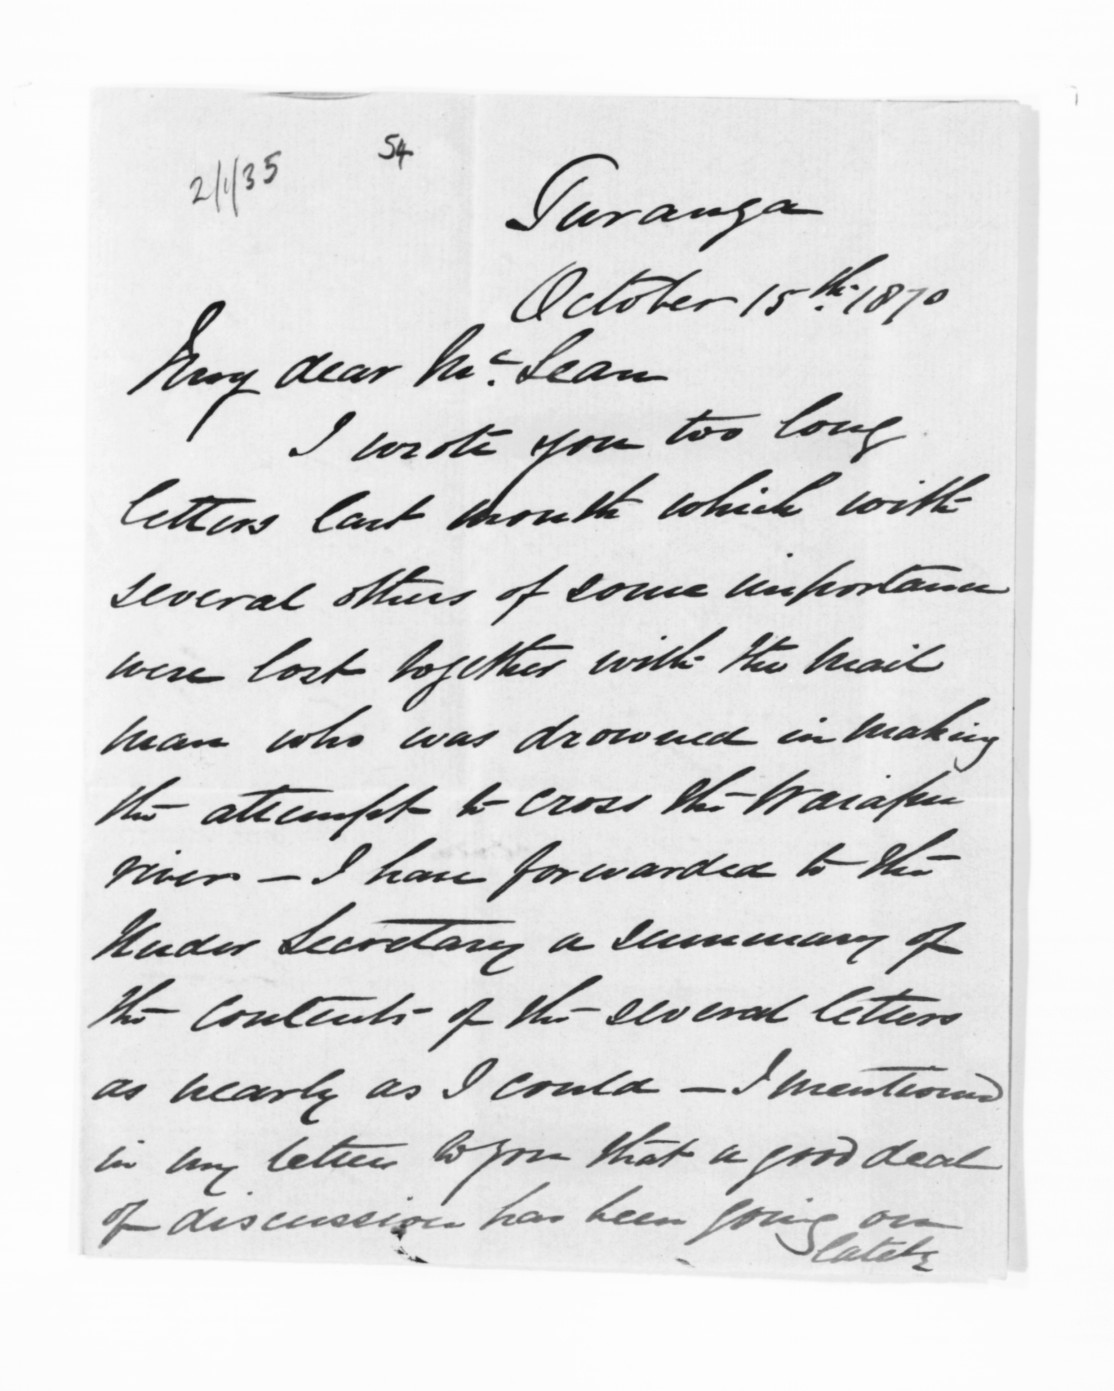 2/1/35
54
Turanga
October 15th. 1870
My dear McLean
I wrote you too long
letters last month which with
several others of some importance
were lost together with the mail
man who was drowned in making
the attempt to cross the Waiapu
river - I have forwarded to the
Under Secretary a summary of
the contents of the several letters
as nearly as I could - I mentioned
in my letter to you that a good deal
of discussion has been going on
lately